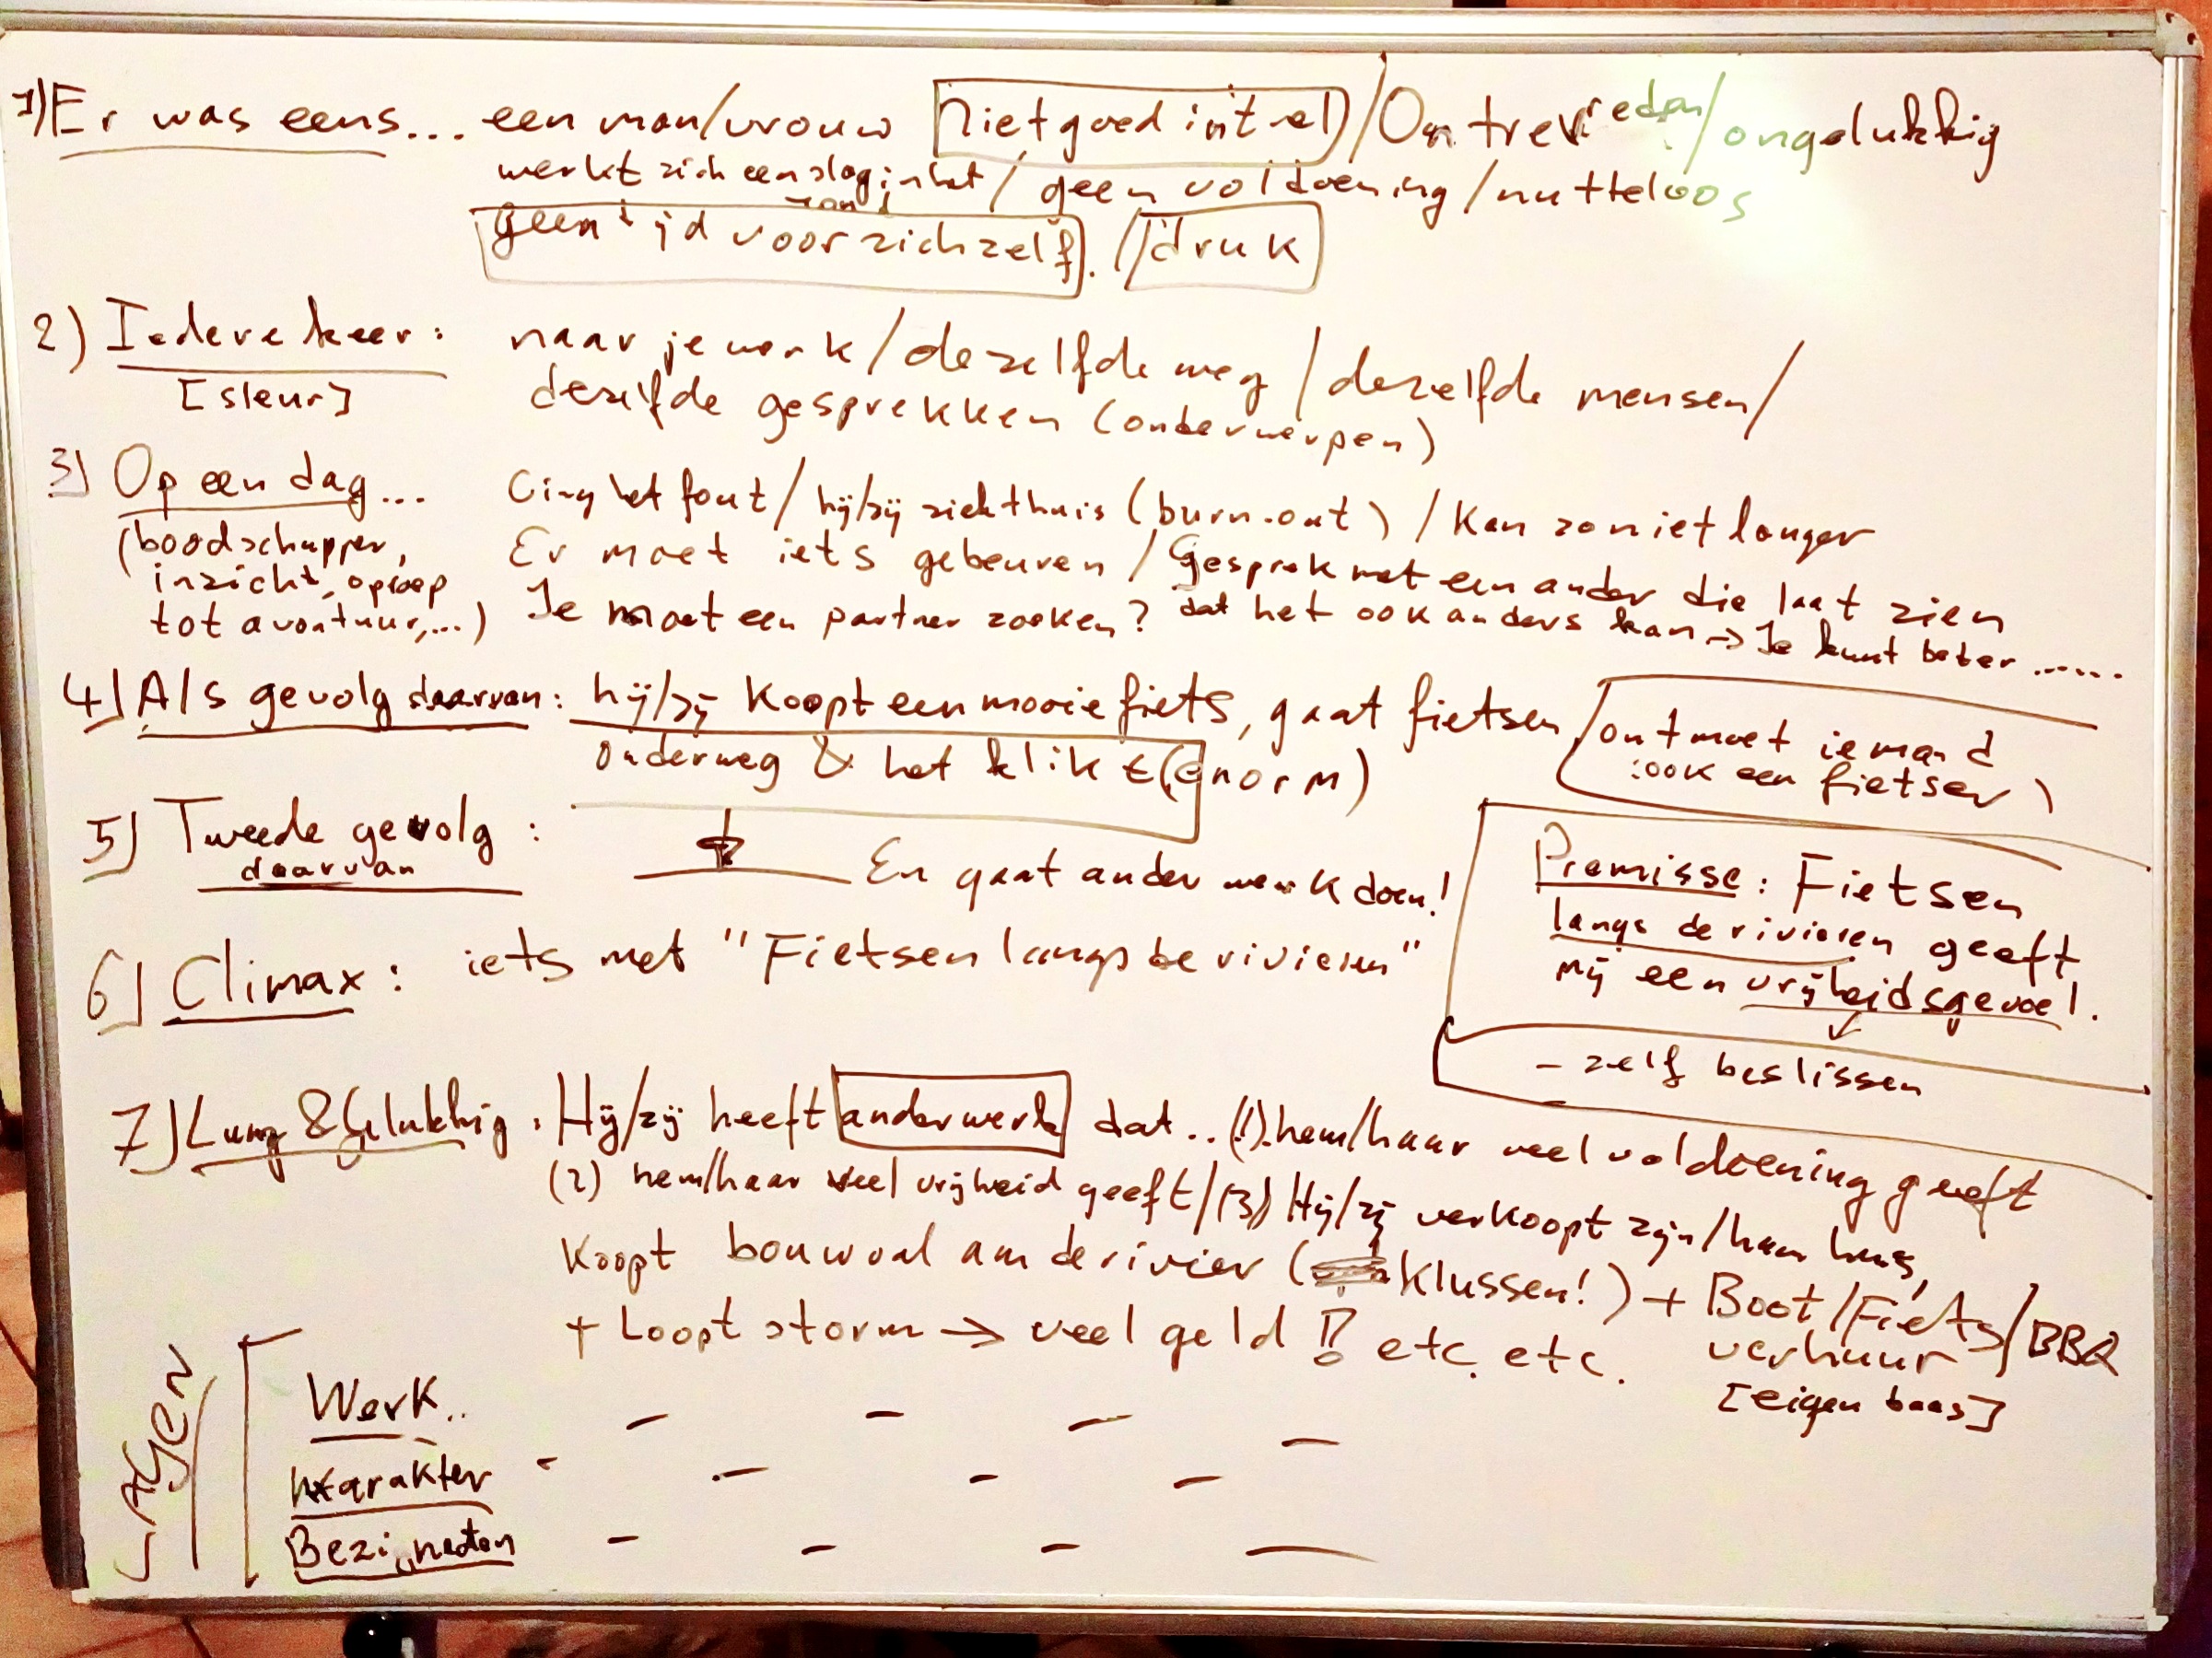 1) Er was eens... een man/vrouw niet goed in 't vel / Ontevreden / ongelukkig
werkt zich een slag in het / geen voldoening / nutteloos
rond
geen tijd voor zichzelf. / druk
2) Iedere keer: naar je werk / dezelfde weg / dezelfde mensen /
[sleur] dezelfde gesprekken (onderwerpen)
3) Op een dag... Ging het fout / hij/zij ziek thuis (burn-out) / Kan zo niet langer
(boodschapper, Er moet iets gebeuren / Gesprek met een ander die laat zien
inzicht, oproep
tot avontuur,...) Je moet een partner zoeken? dat het ook anders kan → Je kunt beter ......
4) Als gevolg daarvan: hij/zij koopt een mooie fiets, gaat fietsen, / ontmoet iemand
onderweg & het klikt (enorm) :ook een fietser)
5) Tweede gevolg :
daarvan En gaat ander werk doen!
Premisse: Fietsen
langs de rivieren geeft
mij een vrijheidsgevoel.
- zelf beslissen
6) Climax: iets met "Fietsen langs de rivieren"
7) Lang & Gelukkig. Hij/zij heeft ander werk dat.. (1). hem/haar veel voldoening geeft
(2) hem/haar veel vrijheid geeft / (3) Hij/zij verkoopt zijn/haar huis,
koopt bouwval aan de rivier (klussen!) + Boot/Fiets/BBQ
verhuur
+ Loopt storm → veel geld! etc. etc.
[eigen baas]
LAGEN
Werk..
karakter
Bezigheden